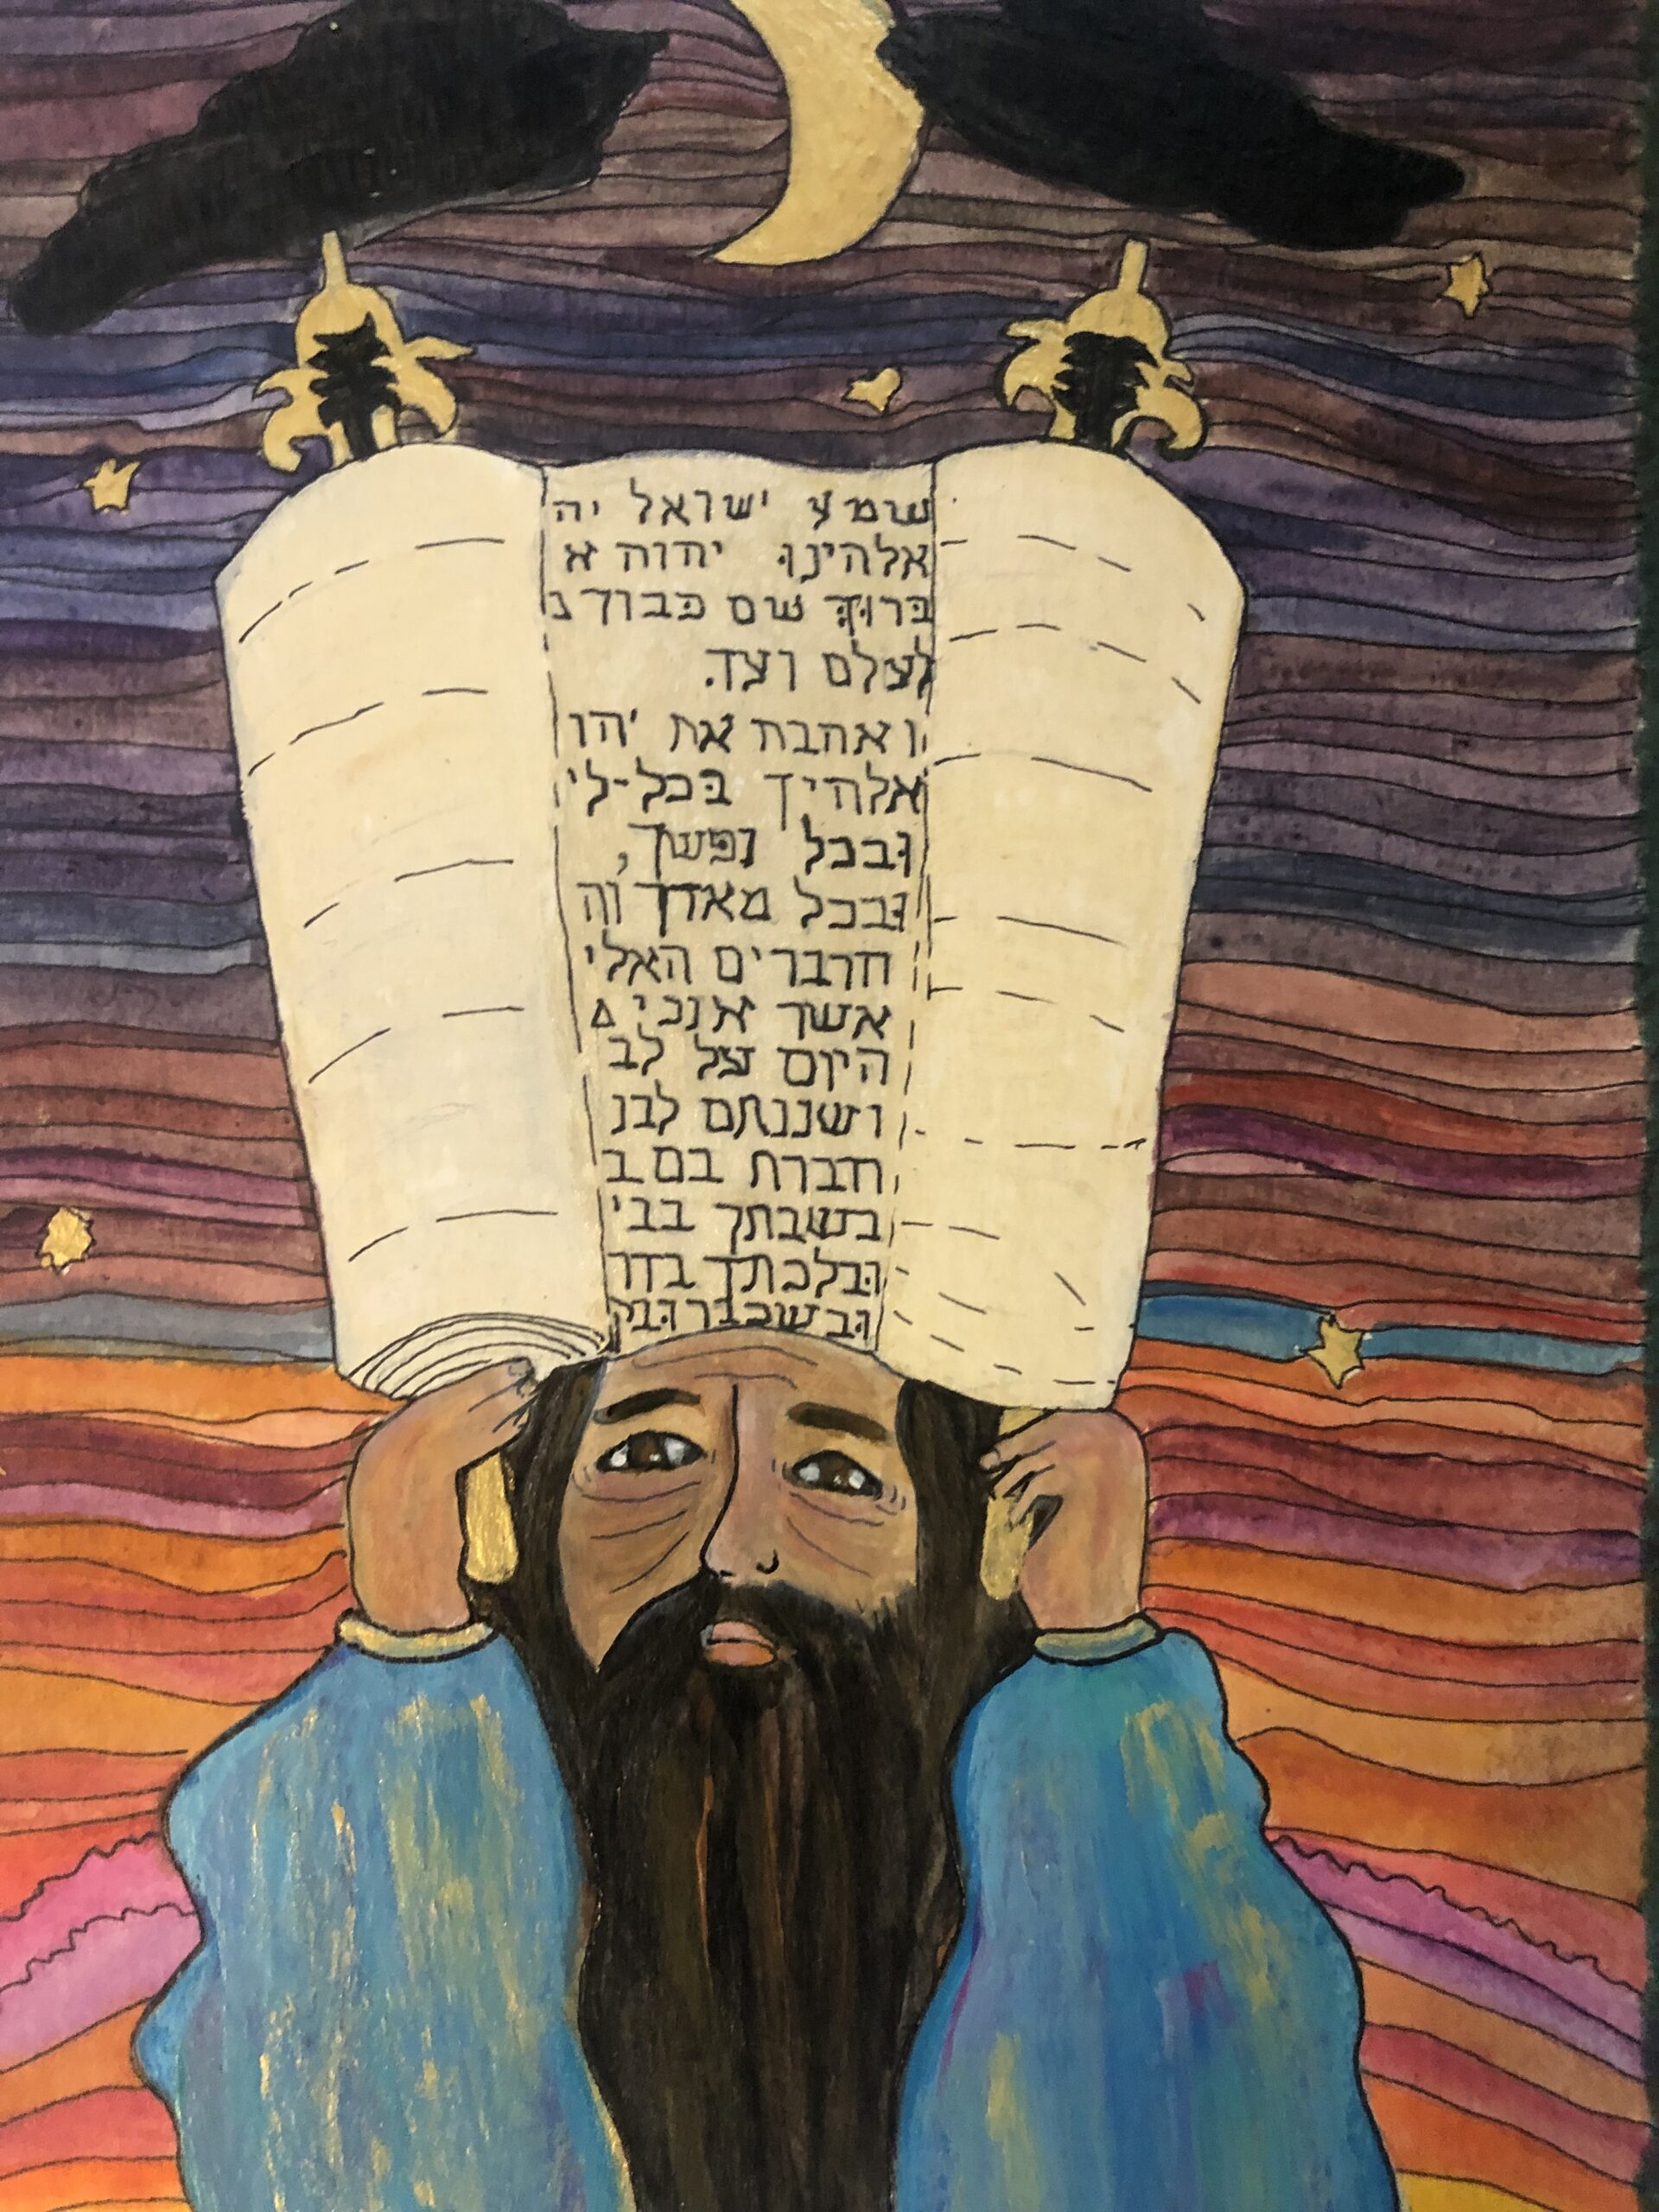 שמע ישראל יה
אלהינוּ יהוה א
בּרוּך שם כּבוד נ
לעלם ועד.
ואהבת את יהו
אלהיך בּכל-לי
וּבכל נפשך,
וּבכל מאדך וה
הדברים האלי
אשר אנכי
היום על לב
ושננתם לבנ
חברת בם ב
בשבתך בבי
וּבלכתך בדר